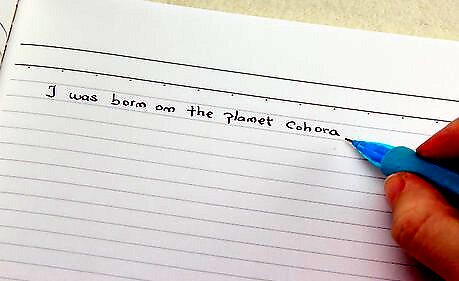 I was born on the planet Cohora